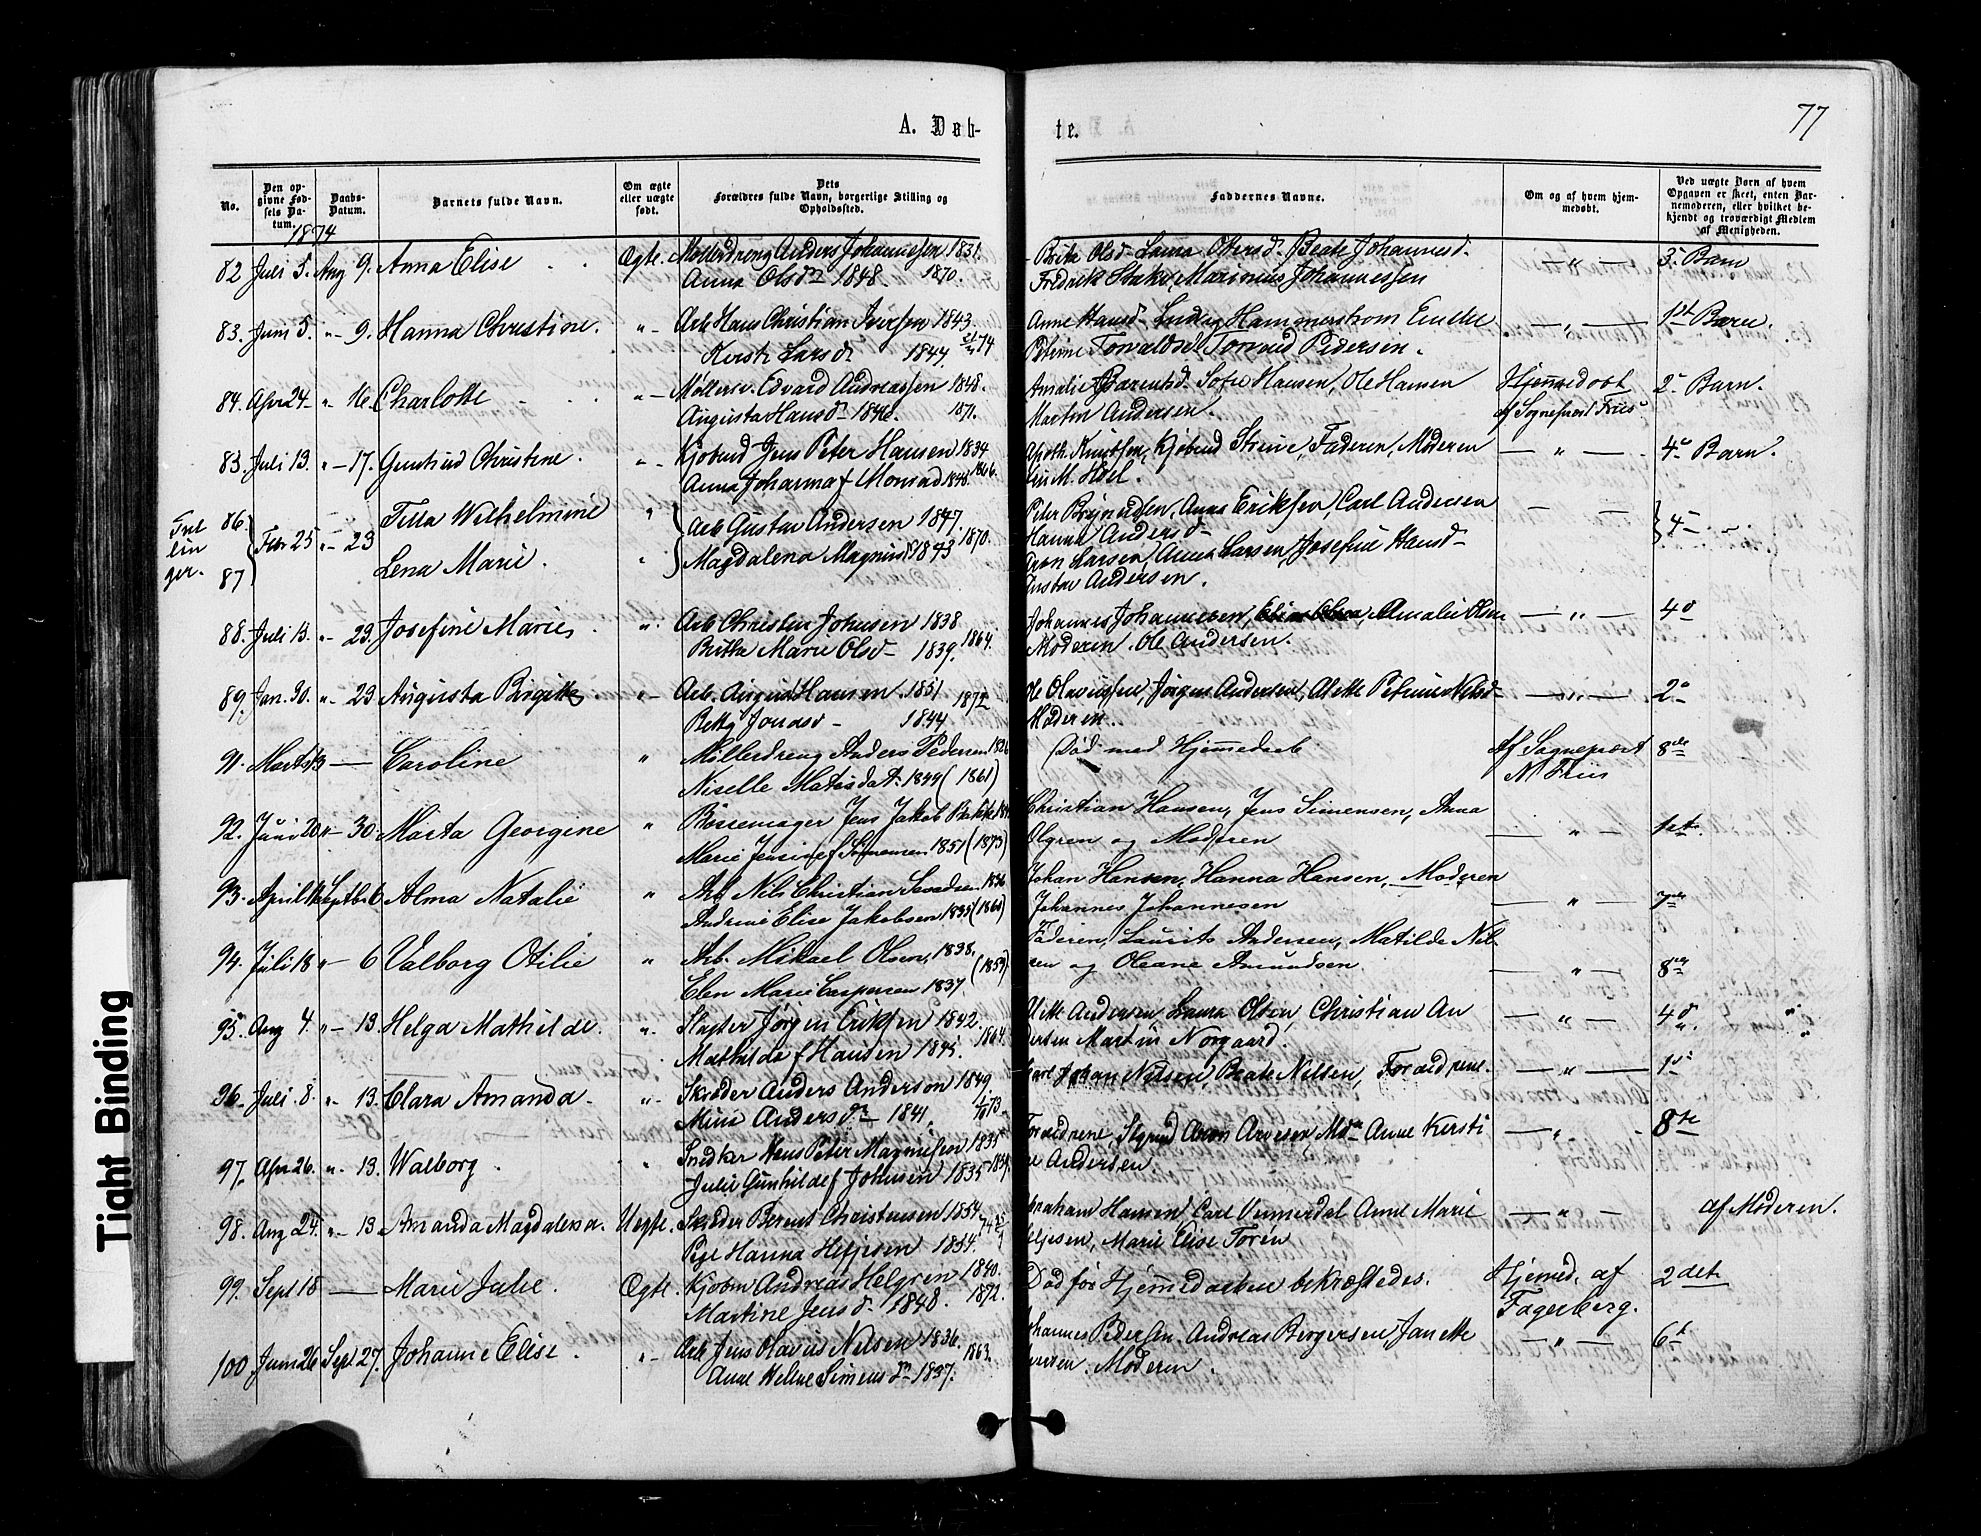 77
A. Døb-
te.
No.
Den op-
givne Fød-
sels Da-
tum.
Daabs-
Datum.
Barnets fulde Navn.
Om ægte
eller uægte
født.
Dets
Forældres fulde Navn, borgerlige Stilling og
Opholdssted.
Faddernes Navne.
Om og af hvem hjem-
medøbt.
Ved uægte Børn af hvem
Opgaven er skeet, enten Bar-
nemoderen, eller hvilket be-
kjendt og troværdigt Medlem
af Menigheden.
1874
82 Juli 5. Aug 9. Anna Elise Ægte. Møllerdreng Anders Johannesen 1831. Brita Olsd Laura Beate Johannesd. 3. Barn
Anna Olsdn 1848. 1870. Fredrik Marinius Johannessen
83. Juni 5. " 9. Hanna Christine. " Arb Hans Christian Iversen 1843 Anne Hansd Ludvig Hammerstrom Emilie 1st Barn.
Kersti Larsd 1844. 74 Petrine Torvald Pedersen.
84. Apr 24 " 16. Charlotte " Møllersv. Edvard Andreassen 1848. Amalie Barentsd. Sofie Hansen, Ole Hansen Hjemmedøbt 2 Barn.
Augusta Hansdn 1846. 1871. Martin Andersen. af Sogneprest Friis
83. Juli 13. " 17. Gunhild Christine. " Kjøbmd Jens Peter Hansen 1834 Apoth. Knutsen, Kjøbmd Faderen, Moderen 4 Barn.
Anna Johanna f Monrad 1848. 1866. M. Hoel.
Tvil
lin
ger.
86 Tilla Wilhelmine " Arb Gustav Andersen 1847. Peter Anna Eriksen, Carl Andersen
Febr 25 " 23 1870. Hanna Andersd 4
87 Lena Marie. " Magdalena Magnusdn 1843 Larsen, Anna Larsen, Josefine Hansd
Gustav Andersen.
88. Juli 13. " 23. Josefine Marie " Arb Christen Johnsen 1838 Johannes Johannesen, Amalie Olsen 4d
Britta Marie Olsd 1839. 1864. Moderen. Ole Andersen.
89. Jan. 30. " 23 Augusta Birgitte " Arb. August Hansen 1851 1872 Ole Olavesen, Jørgen Andersen, Alette Petrine 2
Betty Jonasd 1844 Moderen.
91. Marts 13 Caroline " Møllerdreng Anders Pedersen 1826 Død med Hjemmedaab af Sogneprest 8de
Niselle Matisdat. 1844 (1861) N Friis
92. Juni 20 " 30. Marta Georgine " Børsemager Jens Jakob Christian Hansen, Jens Simensen, Anna 1ste
Marie Jensine f Simensen 1851 (1873) Olgren og Moderen
93. April Septbr 6 Alma Natalie " Arb Nils Christian 1836 Johan Hansen, Hanna Hansen, Moderen 7de
Andrine Elise Jakobsen 1835 (1860) Johannes Johannesen
94. Juli 18 " 6 Valborg Otilie " Arb. Mikael Olsen, 1838. Faderen, Laurits Andersen, Matilde Nil- 8de
Elen Marie Caspersen 1837. (1859) sen og Oleane Amundsen.
95. Aug 4. " 13. Helga Mathilde. " Slagter Jørgen Eriksen 1842. Andersen Laura Olsen, Christian An 4d
Mathilde f Hansen 1845. 1864 dersen Martin Norgaard.
96. Juli 8. " 13. Clara Amanda. " Skræder Anders Anderson 1849. Karl Johan Nilsen, Beate Nilsen, Forældrene. 1
Mine Andersdn 1841. 73 Forældrene, Aron Arvesen Anne Kersti 8de
97. Apr 26. " 13. Walborg. " Snedker Hans Peter Magnusen 1835 ne Andersen
Julie Gunhilde f Johnsen 1835
98. Aug 24. " 13 Amanda Magdalena. Uægte. Skræder Berent Christensen 1854. Abraham Hansen Carl Anne Marie af Moderen.
Pige Hanna 1854. Marie Elise Toren
99. Sept 18 Marie Julie. Ægte. Kjøbm Andreas Helgren 1840. Død før Hjemmedaaben bekræftedes. Hjemed. af 2det
Martine Jensdn 1848. 1872. Fagerberg.
100 Juni 26 Sept 27. Johanne Elise. " Arb Jens Olavus Nilsen 1836. Johannes Pedersen. Andreas Bergersen, Janette 6t
Anne Helene Simensdn 1837. 1863. Moderen.
Tight Binding